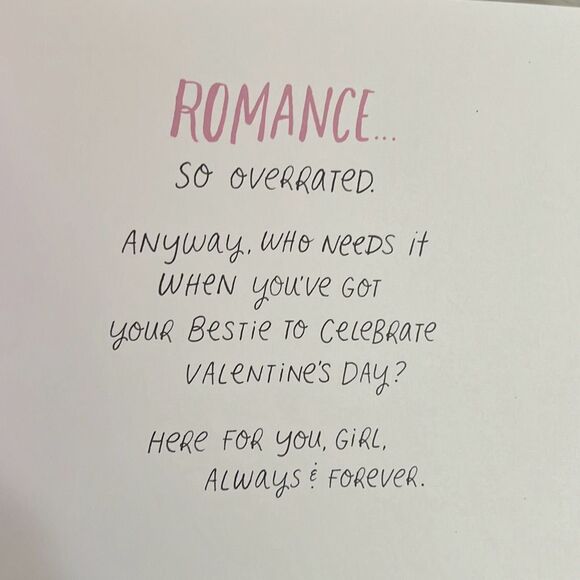 ROMANCE...
SO OVERRATED.
ANYWAY, WHO NEEDS it
WHEN YOU'VE GOT
YOUR BESTIE TO CELEBRATE
VALENTINE'S DAY?
HERE FOR YOU, GiRL,
ALWAYS & FOREVER.